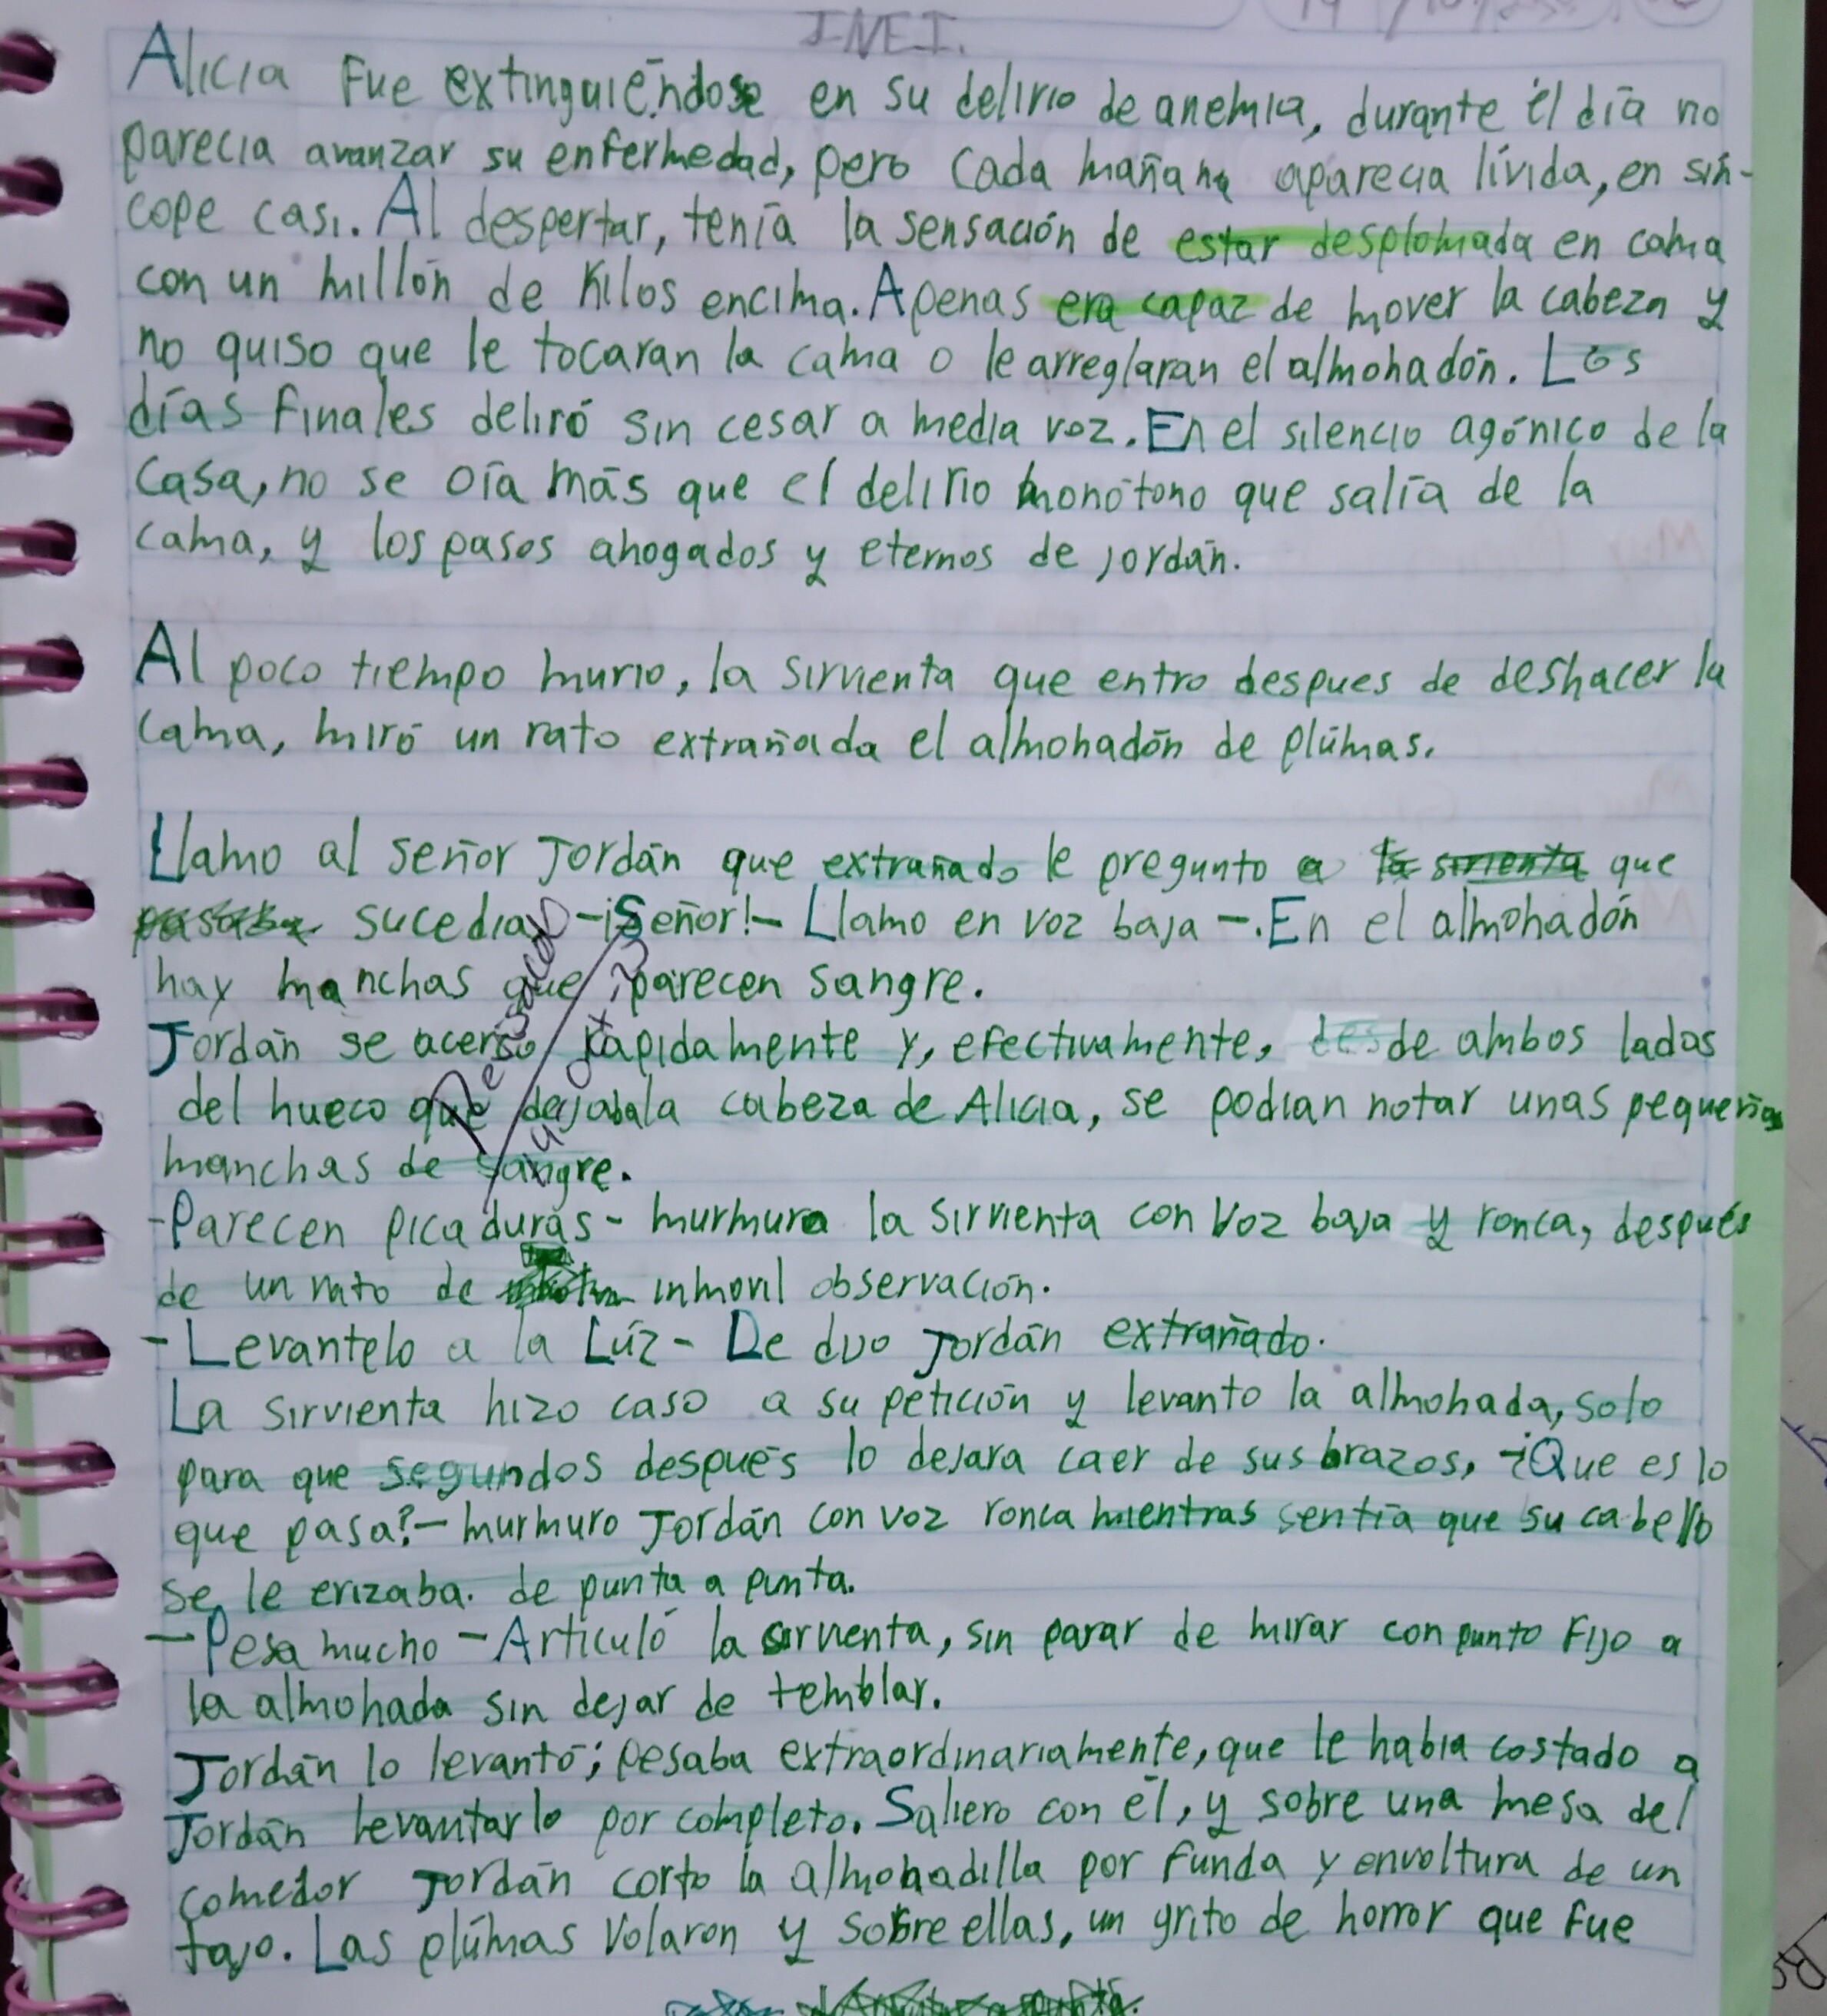 I-NEI.
Alicia fue extinguiéndose en su delirio de anemia, durante el día no
parecia avanzar su enfermedad, pero cada mañana aparecia lívida, en sín-
cope casi. Al despertar, tenía la sensación de estar desplomada en cama
con un millón de Kilos encima. Apenas era capaz de mover la cabeza y
no quiso que le tocaran la cama o le arreglaran el almohadón. Los
días finales deliró sin cesar a media voz. En el silencio agónico de la
Casa, no se oía más que el delirio monótono que salía de la
cama, y los pasos ahogados y eternos de jordán.
Al poco tiempo murio, la sirvienta que entro despues de deshacer la
cama, miró un rato extrañada el almohadón de plúmas.
Llamo al señor Jordán que extrañado le pregunto a la sirvienta que
pasaba sucedia -¡Señor!- Llamo en voz baja -. En el almohadón
hay manchas que parecen sangre.
Jordán se acerco rápidamente y, efectivamente, desde ambos lados
del hueco que dejaba la cabeza de Alicia, se podian notar unas pequeñas
manchas de sangre.
-Parecen picaduras- murmura la sirvienta con voz baja y ronca, después
de un rato de inmovil observación.
-Levantelo a la Lúz- Le dijo Jordán extrañado.
La sirvienta hizo caso a su petición y levanto la almohada, solo
para que segundos después lo dejara caer de sus brazos, -¿Que es lo
que pasa?- murmuro Jordán con voz ronca mientras sentía que su cabello
se le erizaba. de punta a punta.
-Pesa mucho - Articuló la sirvienta, sin parar de mirar con punto fijo a
la almohada sin dejar de temblar.
Jordán lo levantó; pesaba extraordinariamente, que le habia costado a
Jordán levantarlo por completo. Saliero con él, y sobre una mesa del
comedor Jordán corto la almohadilla por funda y envoltura de un
tajo. Las plúmas volaron y sobre ellas, un grito de horror que fue